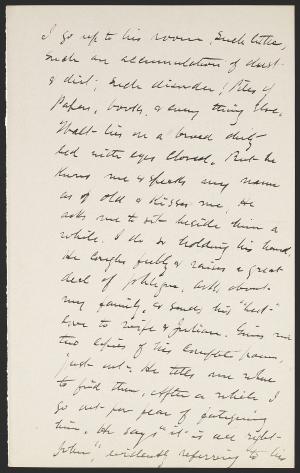 I go up to his room. Such litter,
Such an accumulation of dust
& dirt; Such disorder; Piles of
Papers, books, & every thing else.
Walt lies on a broad dirty
bed with eyes closed. But he
knows me & speaks my name
as of old & kisses me. He
asks me to sit beside him a
while. I do so holding his hand.
He coughs feebly & raises a great
deal of phlegm. Asks about
my family, & sends his "best"
love to wife & Julian. Gives me
two copies of his complete poems,
just out. He tells me where
to find them. After a while I
go out for fear of fatiguing
him. He says "it is all right
John", evidently referring to his